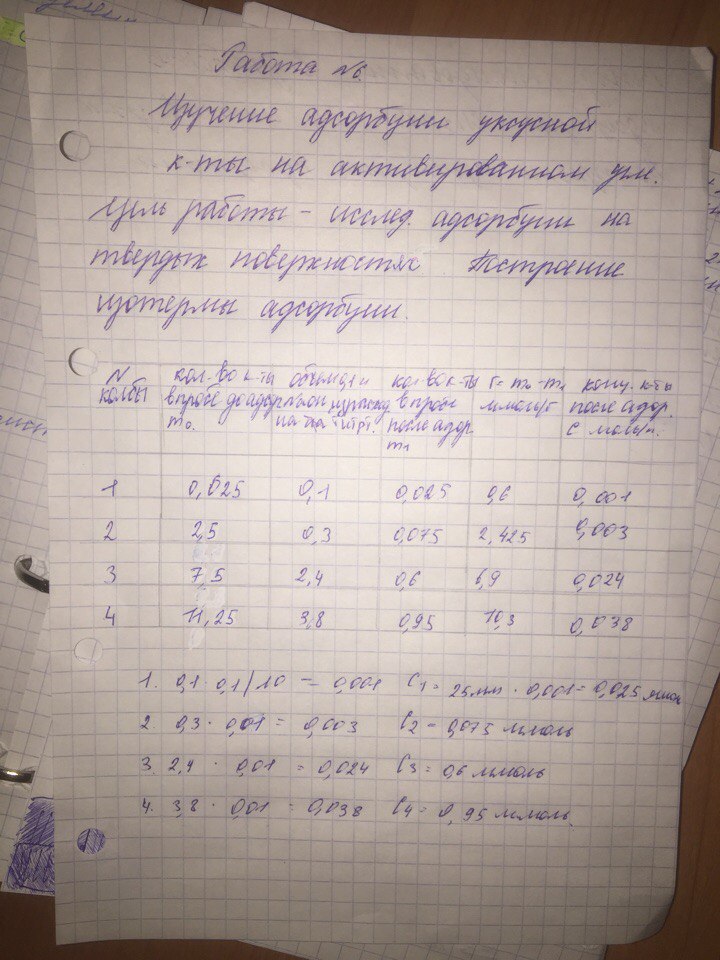 Работа №6.
Изучение адсорбции уксусной
к-ты на активированном угле.
Цель работы – исслед. адсорбции на
твердых поверхностях Построение
изотермы адсорбции.
N колбы
кол-во к-ты в пробе до адсорб m₀.
на титр.
кол во к-ты в пробе после адсор m₁
Г = m₀ - m₁ ммоль/г
конц. к-ты после адсор С моль/л.
1 0,625 0,1 0,025 0,6 0,001
2 2,5 0,3 0,075 2,425 0,003
3 7,5 2,4 0,6 6,9 0,024
4 11,25 3,8 0,95 10,3 0,038
1. 0,1 · 0,1/10 = 0,001 C₁ = 25мм · 0,001 = 0,025 ммоль
2. 0,3 · 0,01 = 0,003 C₂ = 0,075 ммоль
3. 2,4 · 0,01 = 0,024 C₃ = 0,6 ммоль
4. 3,8 · 0,01 = 0,038 C₄ = 0,95 ммоль.